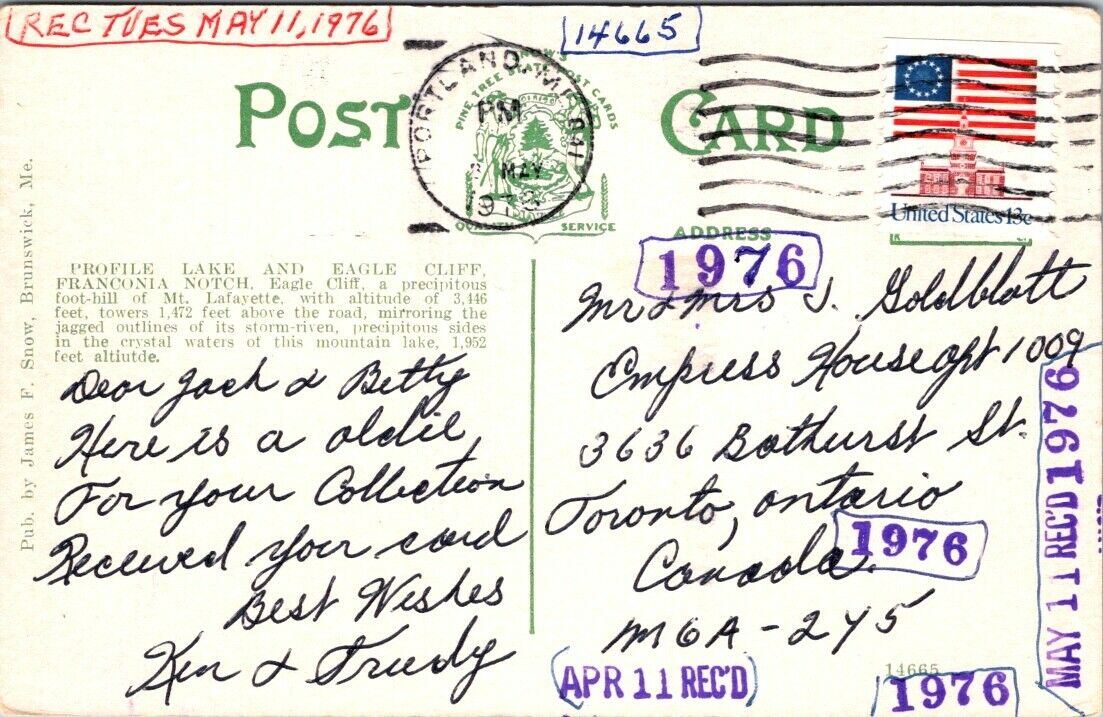 REC TUES MAY 11, 1976
14665
POST CARD
PORTLAND, ME
PM
MAY
SNOW'S PINE TREE STATE POST CARDS
DIRIGO
QUALITY
SERVICE
United States 13c
ADDRESS
1976
Pub. by James F. Snow, Brunswick, Me.
PROFILE LAKE AND EAGLE CLIFF,
FRANCONIA NOTCH, Eagle Cliff, a precipitous
foot-hill of Mt. Lafayette, with altitude of 3,446
feet, towers 1,472 feet above the road, mirroring the
jagged outlines of its storm-riven, precipitous sides
in the crystal waters of this mountain lake, 1,952
feet altiutde.
Dear Jack & Betty
Here is a oldie,
For your Collection
Received your card
Best Wishes
Ken & Trudy
Mr & Mrs J. Goldblatt
Empress House apt 1009
3636 Bathurst St.
Toronto, ontario
Canada.
M6A-2Y5
1976
MAY 11 REC'D 1976
APR 11 REC'D
14665
1976